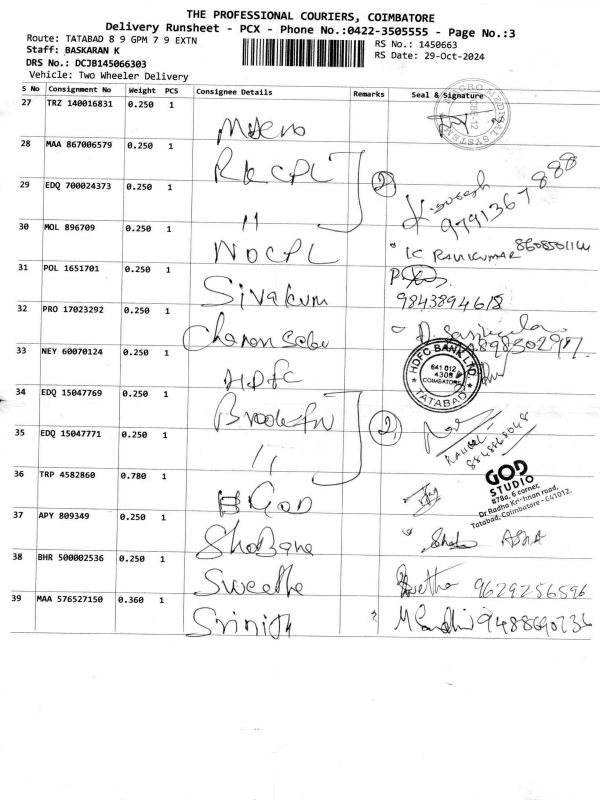 THE PROFESSIONAL COURIERS, COIMBATORE
Delivery Runsheet - PCX - Phone No.:0422-3505555 - Page No.:3
Route: TATABAD 8 9 GPM 7 9 EXTN
RS No.: 1450663
Staff: BASKARAN K
RS Date: 29-Oct-2024
DRS No.: DCJB145066303
Vehicle: Two Wheeler Delivery
S No Consignment No Weight PCS Consignee Details Remarks Seal & Signature
27 TRZ 140016831 0.250 1
28 MAA 867006579 0.250 1 RKCPL
2
29 EDQ 700024373 0.250 1 11
9791367888
30 MOL 896709 0.250 1 NOCPL
K RAVIKUMAR
31 POL 1651701 0.250 1 Sivakum
9843894618
32 PRO 17023292 0.250 1
33 NEY 60070124 0.250 1 HDFC
HDFC BANK LTD
641 012
4308
COIMBATORE
TATABAD
34 EDQ 15047769 0.250 1
2
35 EDQ 15047771 0.250 1 11
8848868048
36 TRP 4582860 0.780 1 GOD
GOD
STUDIO
#78a, 6 corner,
Dr.Radha Krishnan road,
Tatabad, Coimbatore - 641012.
37 APY 809349 0.250 1 Shobana
ASHA
38 BHR 500002536 0.250 1 Swetha
Swetha 9629256596
39 MAA 576527150 0.360 1 Srinith